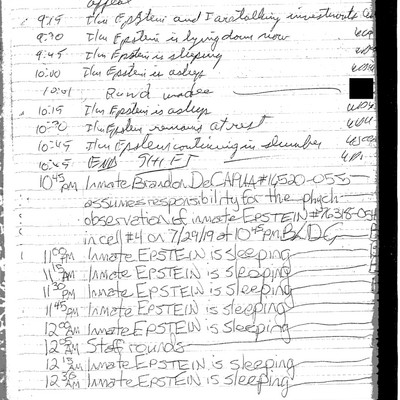 appeal
9:15 I/m Epstein and I are talking investments
9:30 I/m Epstein is lying down now
9:45 I/m Epstein is sleeping
10:00 I/m Epstein is asleep
10:01 Round made
10:15 I/m Epstein is asleep
10:30 I/m Epstein remains at rest
10:45 I/m Epstein continuing in slumber
10:45 END SHIFT
10:45 PM Inmate Brandon DeCAPUA #16520-055
assumes responsibility for the phych
observation of inmate EPSTEIN #76318-054
in cell #4 on 7/29/19 at 10:45 PM.
11:00 PM Inmate EPSTEIN is sleeping
11:15 PM Inmate EPSTEIN is sleeping
11:30 PM Inmate EPSTEIN is sleeping
11:45 PM Inmate EPSTEIN is sleeping
12:00 AM Inmate EPSTEIN is sleeping
AM Staff rounds
12:15 AM Inmate EPSTEIN is sleeping
12:30 AM Inmate EPSTEIN is sleeping